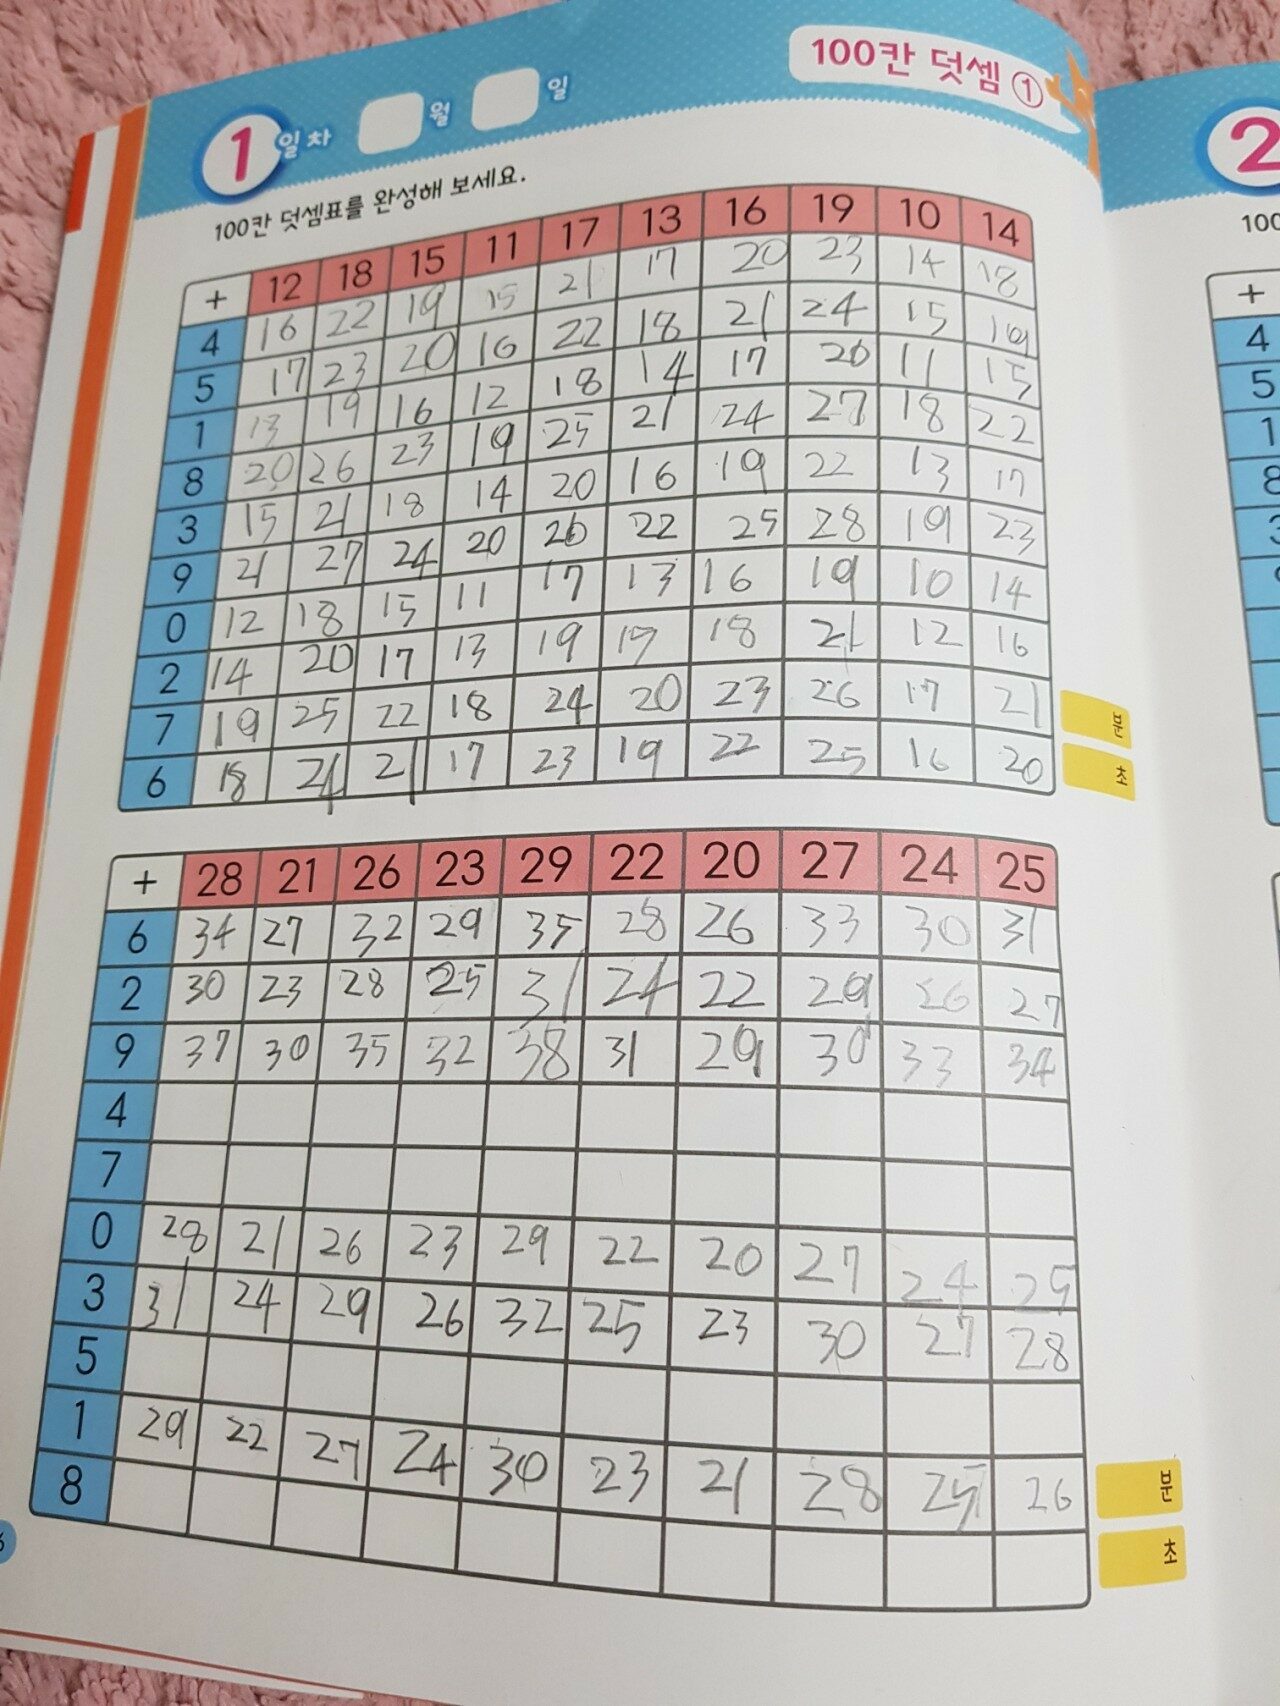 100칸 덧셈 ①
1 일차 월 일
100칸 덧셈표를 완성해 보세요.
+ 12 18 15 11 17 13 16 19 10 14
4 16 22 19 15 21 17 20 23 14 18
5 17 23 20 16 22 18 21 24 15 19
1 13 19 16 12 18 14 17 20 11 15
8 20 26 23 19 25 21 24 27 18 22
3 15 21 18 14 20 16 19 22 13 17
9 21 27 24 20 26 22 25 28 19 23
0 12 18 15 11 17 13 16 19 10 14
2 14 20 17 13 19 15 18 21 12 16
7 19 25 22 18 24 20 23 26 17 21
분
6 18 24 21 17 23 19 22 25 16 20
초
+ 28 21 26 23 29 22 20 27 24 25
6 34 27 32 29 35 28 26 33 30 31
2 30 23 28 25 31 24 22 29 26 27
9 37 30 35 32 38 31 29 30 33 34
4
7
0 28 21 26 23 29 22 20 27 24 25
3 31 24 29 26 32 25 23 30 27 28
5
1 29 22 27 24 30 23 21 28 25 26
분
8
초
2
100
+
4
5
1
8